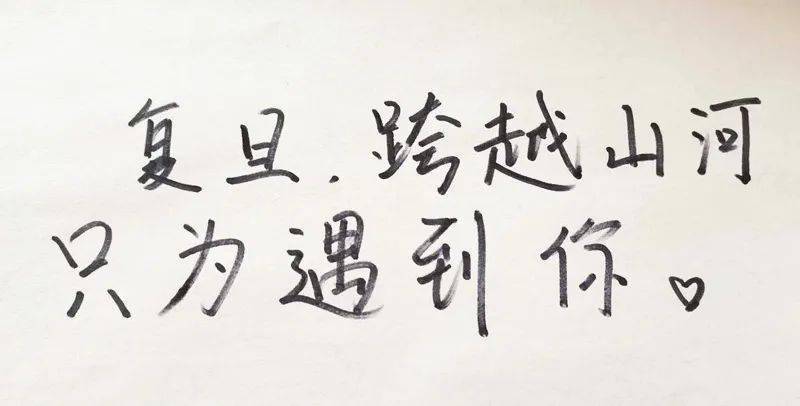 复旦.跨越山河
只为遇到你。♡